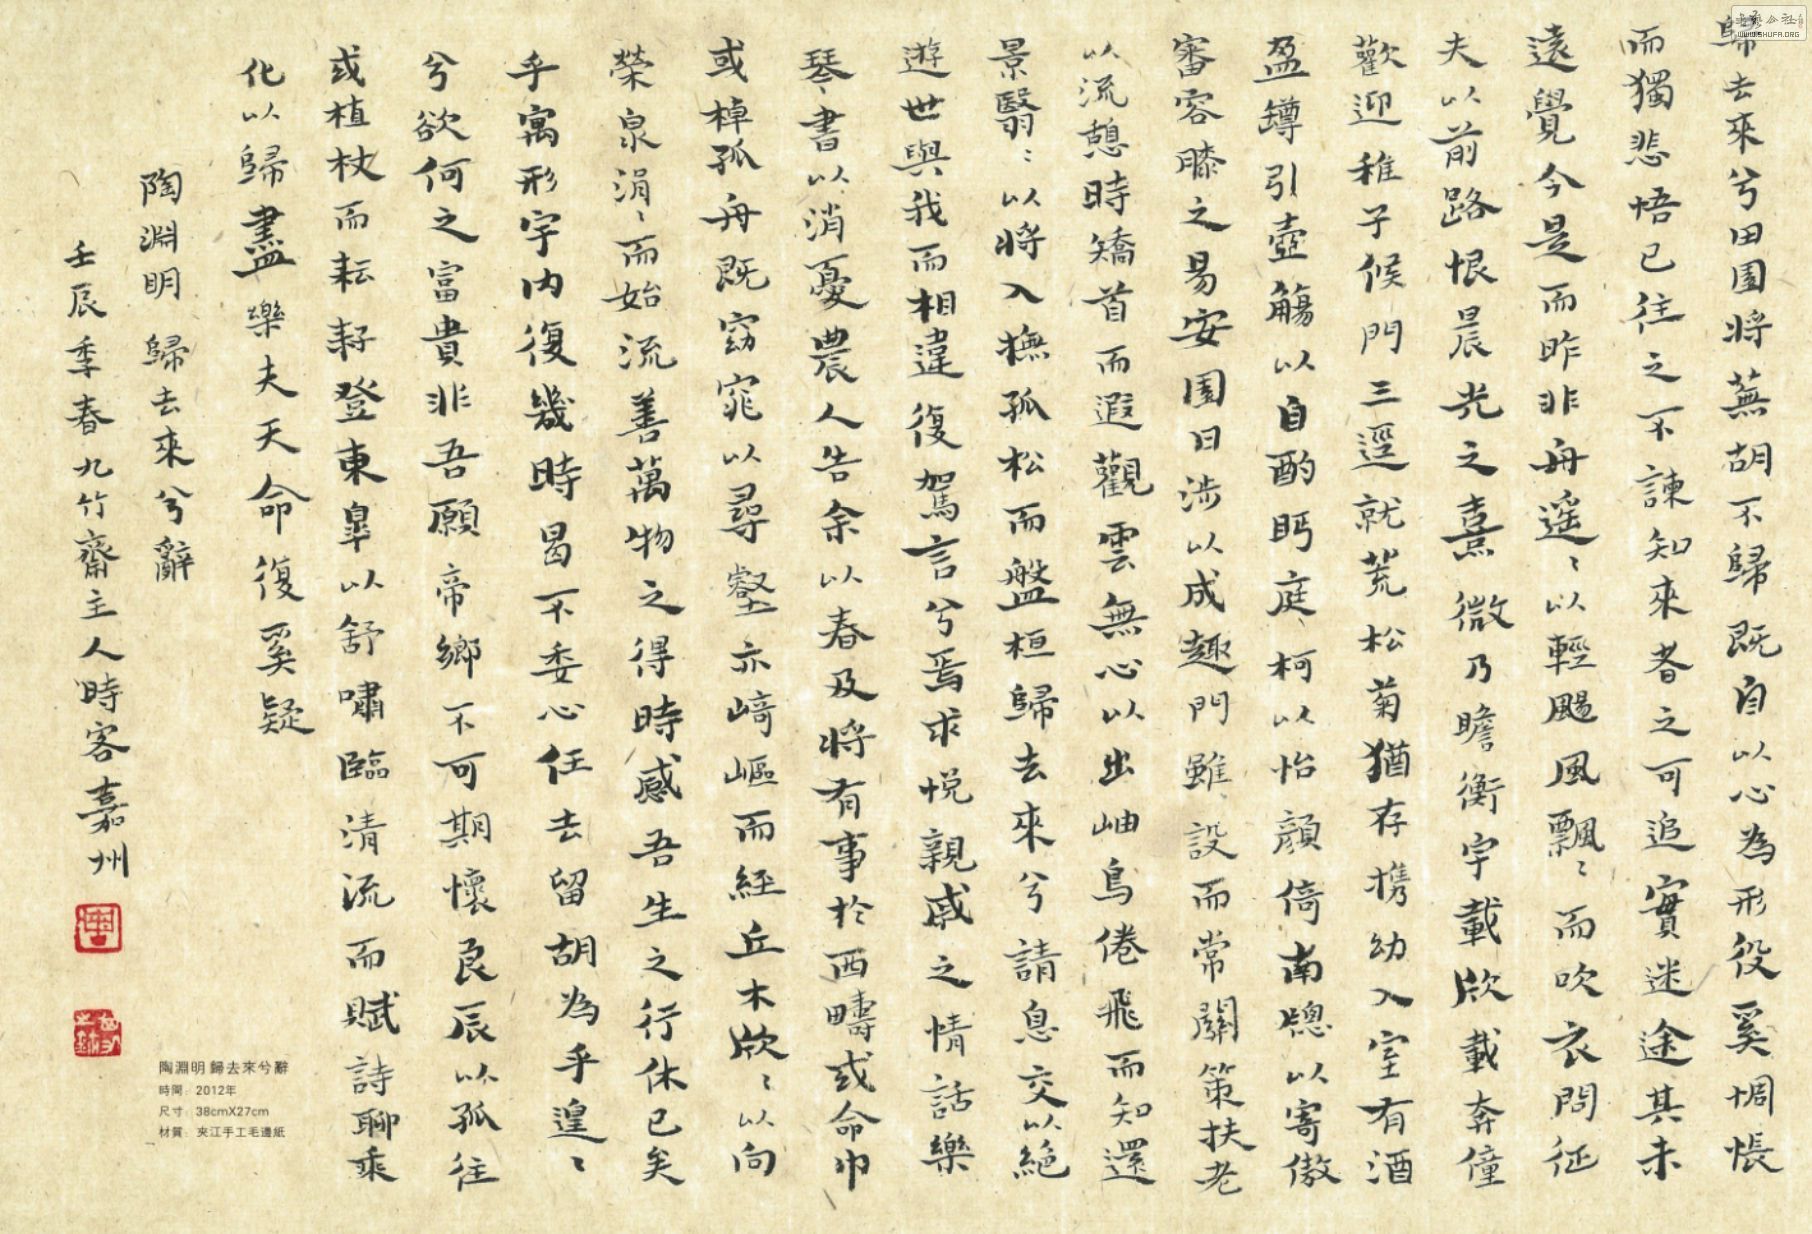 歸去來兮田園將蕪胡不歸既自以心為形役奚惆悵
而獨悲悟已往之不諫知來者之可追實迷途其未
遠覺今是而昨非舟遥〻以輕颺風飄〻而吹衣問征
夫以前路恨晨光之熹微乃瞻衡宇載欣載奔僮
歡迎稚子候門三逕就荒松菊猶存携幼入室有酒
盈罇引壺觴以自酌眄庭柯以怡顏倚南牕以寄傲
審容膝之易安園日涉以成趣門雖設而常關策扶老
以流憩時矯首而遐觀雲無心以出岫鳥倦飛而知還
景翳〻以將入撫孤松而盤桓歸去來兮請息交以絕
遊世與我而相違復駕言兮焉求悅親戚之情話樂
琴書以消憂農人告余以春及將有事於西疇或命巾
或棹孤舟既窈窕以尋壑亦崎嶇而經丘木欣〻以向
榮泉涓〻而始流善萬物之得時感吾生之行休已矣
乎寓形宇內復幾時曷不委心任去留胡為乎遑〻
兮欲何之富貴非吾願帝鄉不可期懷良辰以孤往
或植杖而耘耔登東皐以舒嘯臨清流而賦詩聊乘
化以歸盡樂夫天命復奚疑
陶淵明 歸去來兮辭
壬辰季春九竹齋主人時客嘉州
陶淵明 歸去來兮辭
時間：2012年
尺寸：38cmX27cm
材質：夾江手工毛邊紙
WWW.SHUFA.ORG